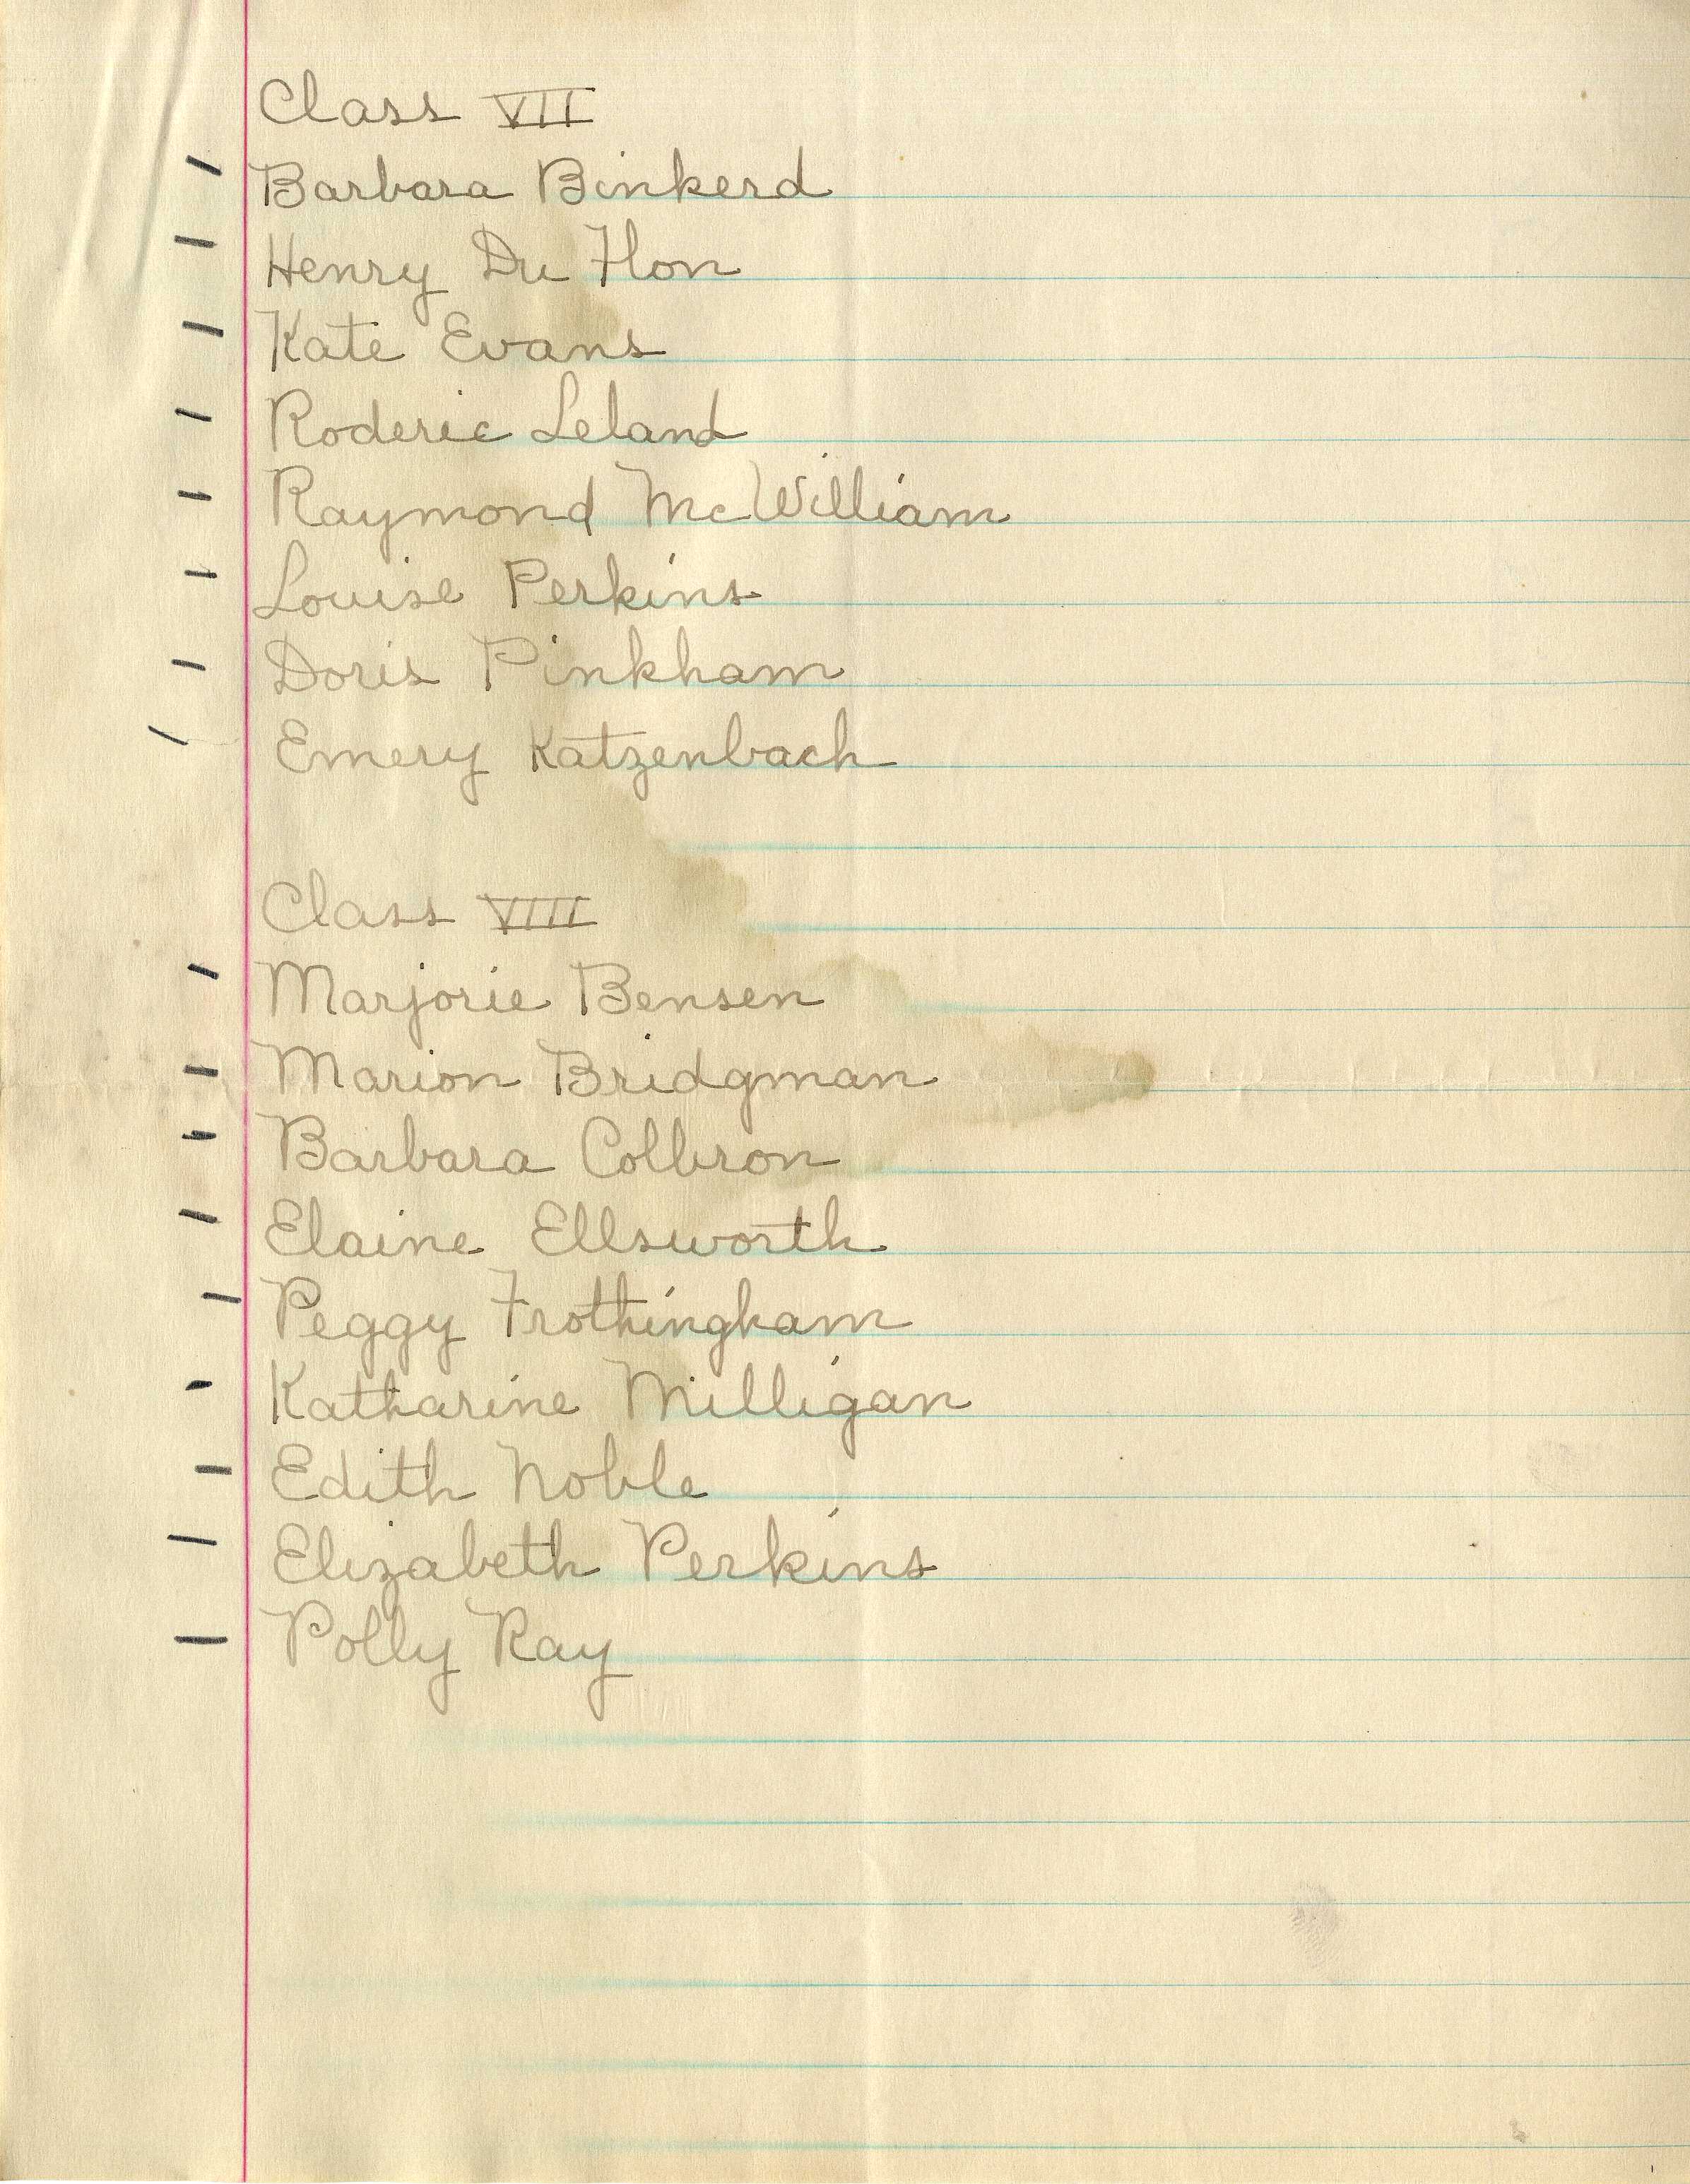 Class VII
Barbara Binkerd
Henry Du Flon
Kate Evans
Roderic Leland
Raymond McWilliam
Louise Perkins
Doris Pinkham
Emery Katzenbach
Class VIIII
Marjorie Bensen
Marion Bridgman
Barbara Colbron
Elaine Ellsworth
Peggy Frothingham
Katharine Milligan
Edith Noble
Elizabeth Perkins
Polly Ray